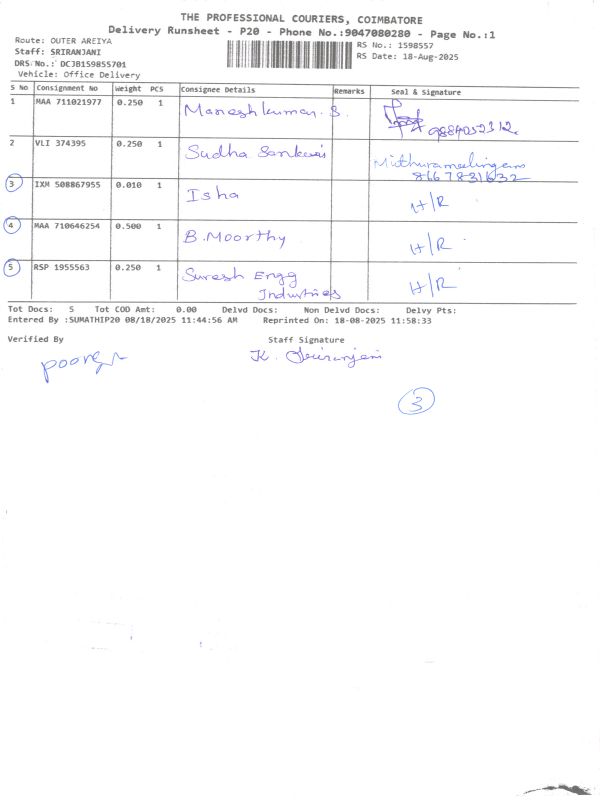 THE PROFESSIONAL COURIERS, COIMBATORE
Delivery Runsheet - P20 - Phone No.:9047080280 - Page No.:1
Route: OUTER AREIYA
RS No.: 1598557
Staff: SRIRANJANI
RS Date: 18-Aug-2025
DRS No.: DCJB159855701
Vehicle: Office Delivery
S No Consignment No Weight PCS Consignee Details Remarks Seal & Signature
1 MAA 711021977 0.250 1 Maneshkumar. S.
2 VLI 374395 0.250 1 Sudha
8667831632
3 IXM 508867955 0.010 1 Isha H/R
4 MAA 710646254 0.500 1 B.Moorthy H/R
5 RSP 1955563 0.250 1 Suresh Engg H/R
Industries
Tot Docs: 5 Tot COD Amt: 0.00 Delvd Docs: Non Delvd Docs: Delvy Pts:
Entered By :SUMATHIP20 08/18/2025 11:44:56 AM Reprinted On: 18-08-2025 11:58:33
Verified By Staff Signature
3